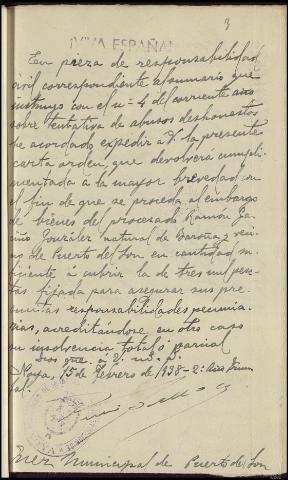 3
¡VIVA ESPAÑA!
En pieza de responsabilidad
civil correspondiente al sumario que
instruyo con el nº 4 del corriente año
sobre tentativa de abusos deshonestos
he acordado expedir a V. la presente
carta orden, que devolverá cumpli-
mentada á la mayor brevedad, en
el fin de que se proceda al embargo
de bienes del procesado Ramón
González natural de Baroña y veci-
no de Puerto del Son en cantidad su-
ficiente á cubrir la de tres mil pese-
tas fijada para asegurar sus pre-
suntas responsabilidades pecunia-
rias, acreditándose en otro caso
su insolvencia total ó parcial
Dios gue. á V. m. a.
Noya, 15 de febrero de 1938-2º Año Triun
fal.
Juez Municipal de Puerto del Son